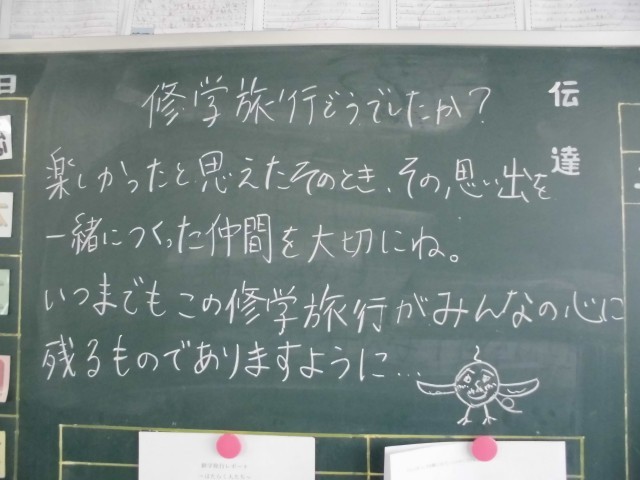 修学旅行どうでしたか?
伝達
楽しかったと思えたそのとき、その思い出を
一緒につくった仲間を大切にね。
いつまでもこの修学旅行がみんなの心に
残るものでありますように…
日